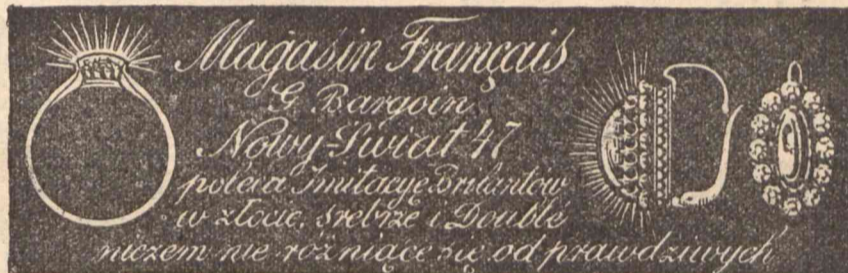 Magasin Français
G. Bargoin
Nowy-Świat 47
poleca Imitacye Brilantów
w złocie, srebrze i Doublé
niczem nie różniące się od prawdziwych